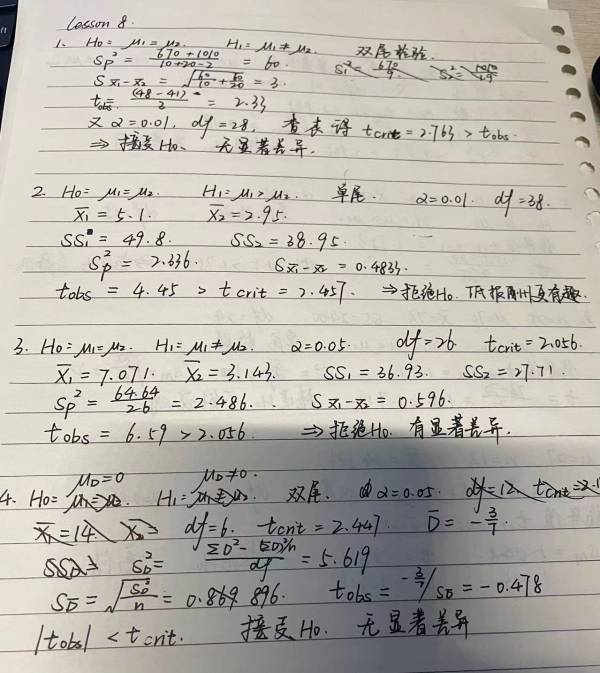 Lesson 8.
1. H₀: μ₁=μ₂. H₁=μ₁≠μ₂. 双尾检验.
Sp² = (670+1010)/(10+20-2) = 60. S₁²=670/9 S₂²=1010/19
S x̄₁-x̄₂ = √(60/10+60/20) = 3.
t obs = (48-41)/3 = 2.33
又 α=0.01, df=28, 查表得 t crit = 2.763 > t obs.
⇒ 接受H₀、 无显著差异.
2. H₀= μ₁=μ₂. H₁= μ₁>μ₂. 单尾. α=0.01. df=38.
X̄₁=5.1. X̄₂=2.95.
SS₁=49.8. SS₂=38.95.
Sp²=2.336. S x̄₁-x̄₂ = 0.4833.
t obs = 4.45 > t crit = 2.457. ⇒拒绝H₀.
3. H₀=μ₁=μ₂. H₁=μ₁≠μ₂. α=0.05. df=26 t crit=2.056.
X̄₁=7.071. X̄₂=3.143. SS₁=36.93. SS₂=27.71.
Sp²=64.64/26=2.486. S x̄₁-x̄₂ = 0.596.
t obs = 6.59 > 2.056. ⇒拒绝H₀. 有显著差异.
μD=0 μD≠0.
4. H₀= μ₁=μ₂ H₁= 双尾. α=0.05. df=12, t crit=2.1
X̄₁=14. df=6. t crit=2.447. D̄=-3/7.
SD²= (ΣD²-(ΣD)²/n)/df = 5.619
S D̄ = √(SD²/n) = 0.896. t obs = -3/7/S D̄ = -0.478
|t obs| < t crit. 接受H₀. 无显著差异